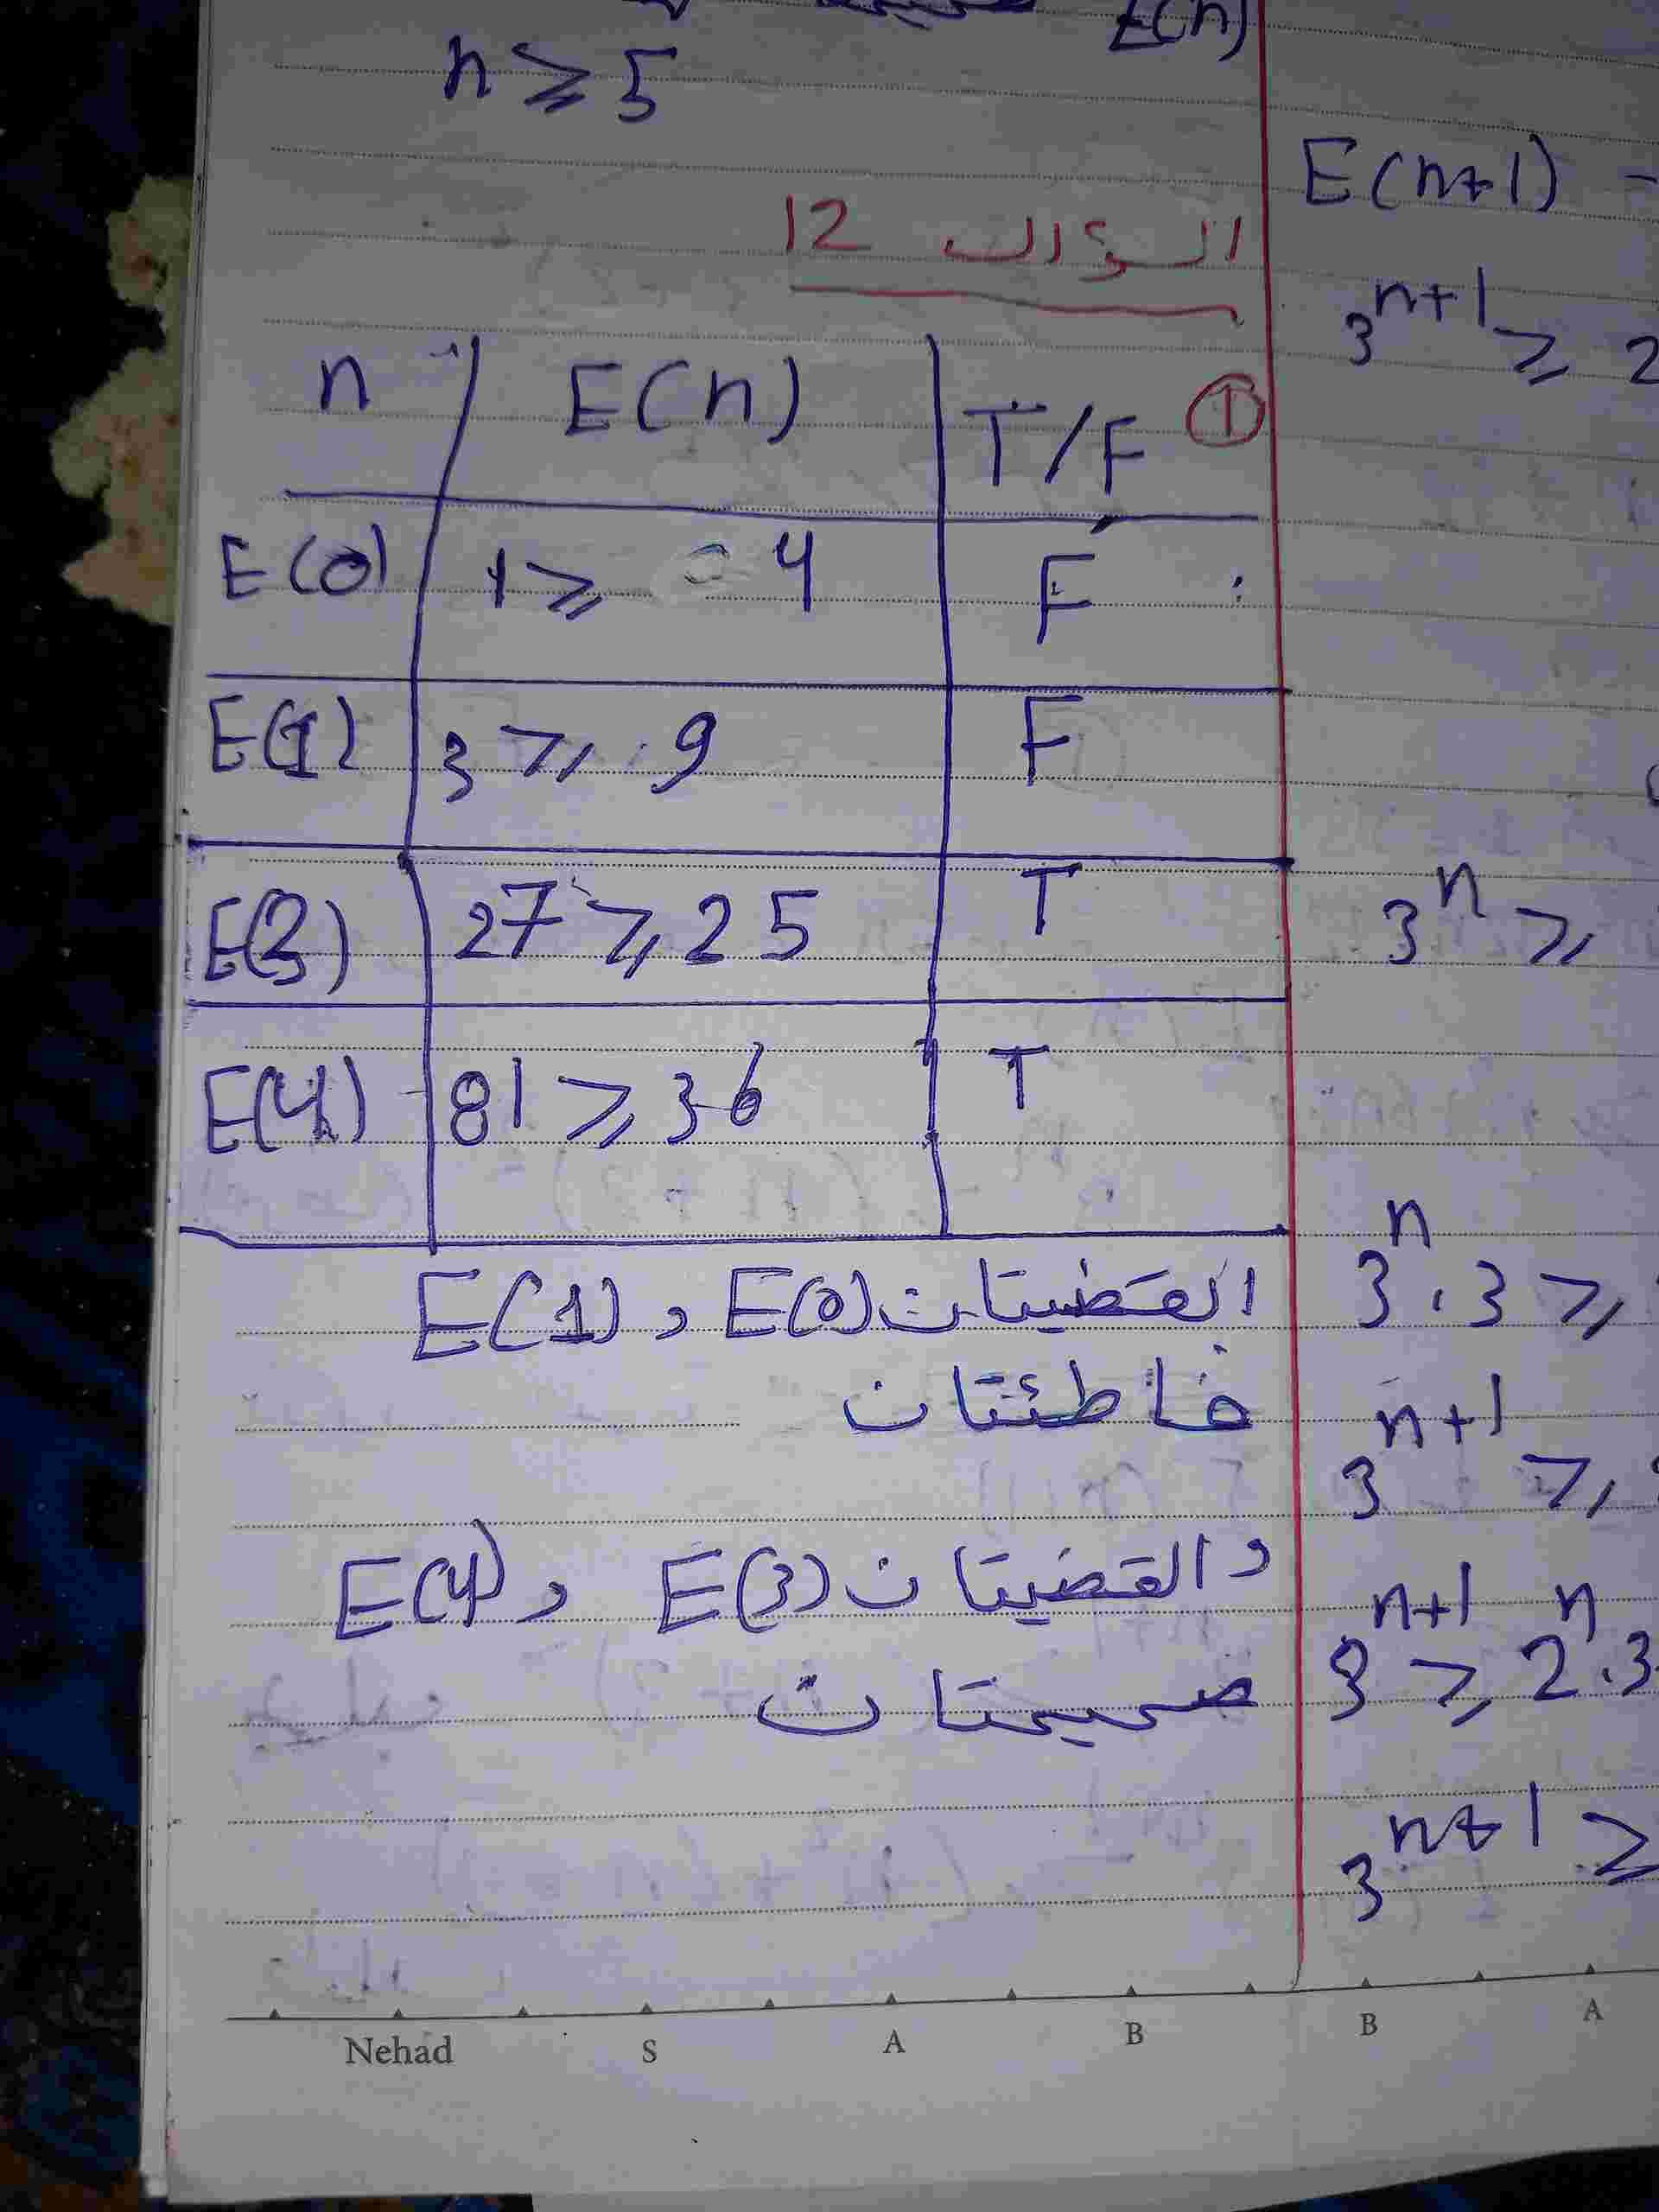 E(n)
n ≥ 5
السؤال 12
n | E(n) | T/F ①
E(0) | 1 ≥ 4 | F
E(1) | 3 ≥ 9 | F
E(3) | 27 ≥ 25 | T
E(4) | 81 ≥ 36 | T
القضيتان E(0) و E(1)
خاطئتان
والقضيتان E(3) و E(4)
صحيحتان
E(n+1)
3^{n+1} ≥ 2
3^n ≥
3^n . 3 ≥
3^{n+1} ≥
3^{n+1} ≥ 2^n . 3
3^{n+1} ≥
Nehad S A B B A